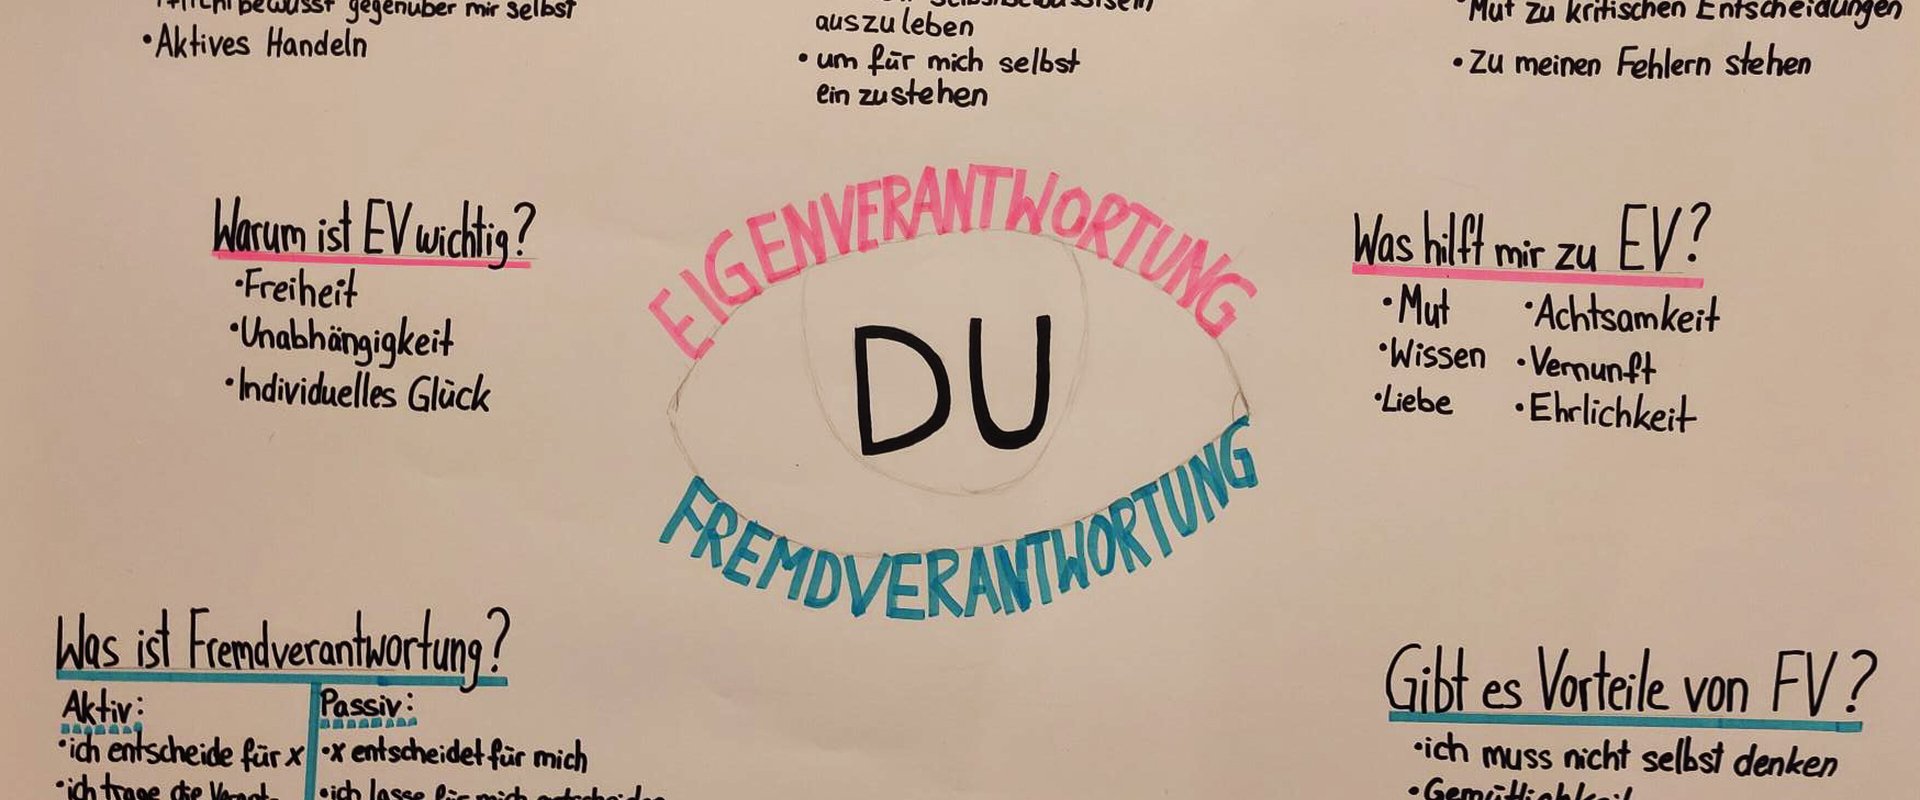 bewusst gegenüber mir selbst
•Aktives Handeln
auszuleben
• um für mich selbst
ein zustehen
Mut zu kritischen Entscheidungen
• Zu meinen Fehlern stehen
Warum ist EV wichtig?
•Freiheit
•Unabhängigkeit
•Individuelles Glück
EIGENVERANTWORTUNG
DU
FREMDVERANTWORTUNG
Was hilft mir zu EV?
•Mut
•Wissen
•Liebe
•Achtsamkeit
•Vernunft
•Ehrlichkeit
Was ist Fremdverantwortung?
Aktiv:
•ich entscheide für x
•ich trage die
Passiv:
•x entscheidet für mich
•ich lasse für mich entscheiden
Gibt es Vorteile von FV?
•ich muss nicht selbst denken
•Gemütlichkeit